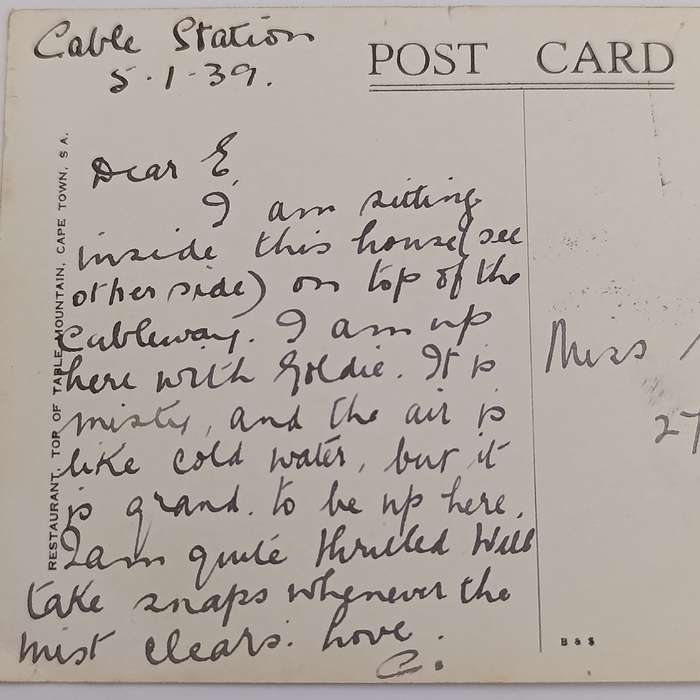 Cable Station
5.1.39.
POST CARD
RESTAURANT, TOP OF TABLE MOUNTAIN, CAPE TOWN, S A.
Dear E,
I am sitting
inside this house (see
other side) on top of the
Cableway. I am up
here with Goldie. It is
misty, and the air is
like cold water, but it
is grand. to be up here.
I am quite thrilled Will
take snaps whenever the
mist clears. Love.
C.
Miss
27
B & S